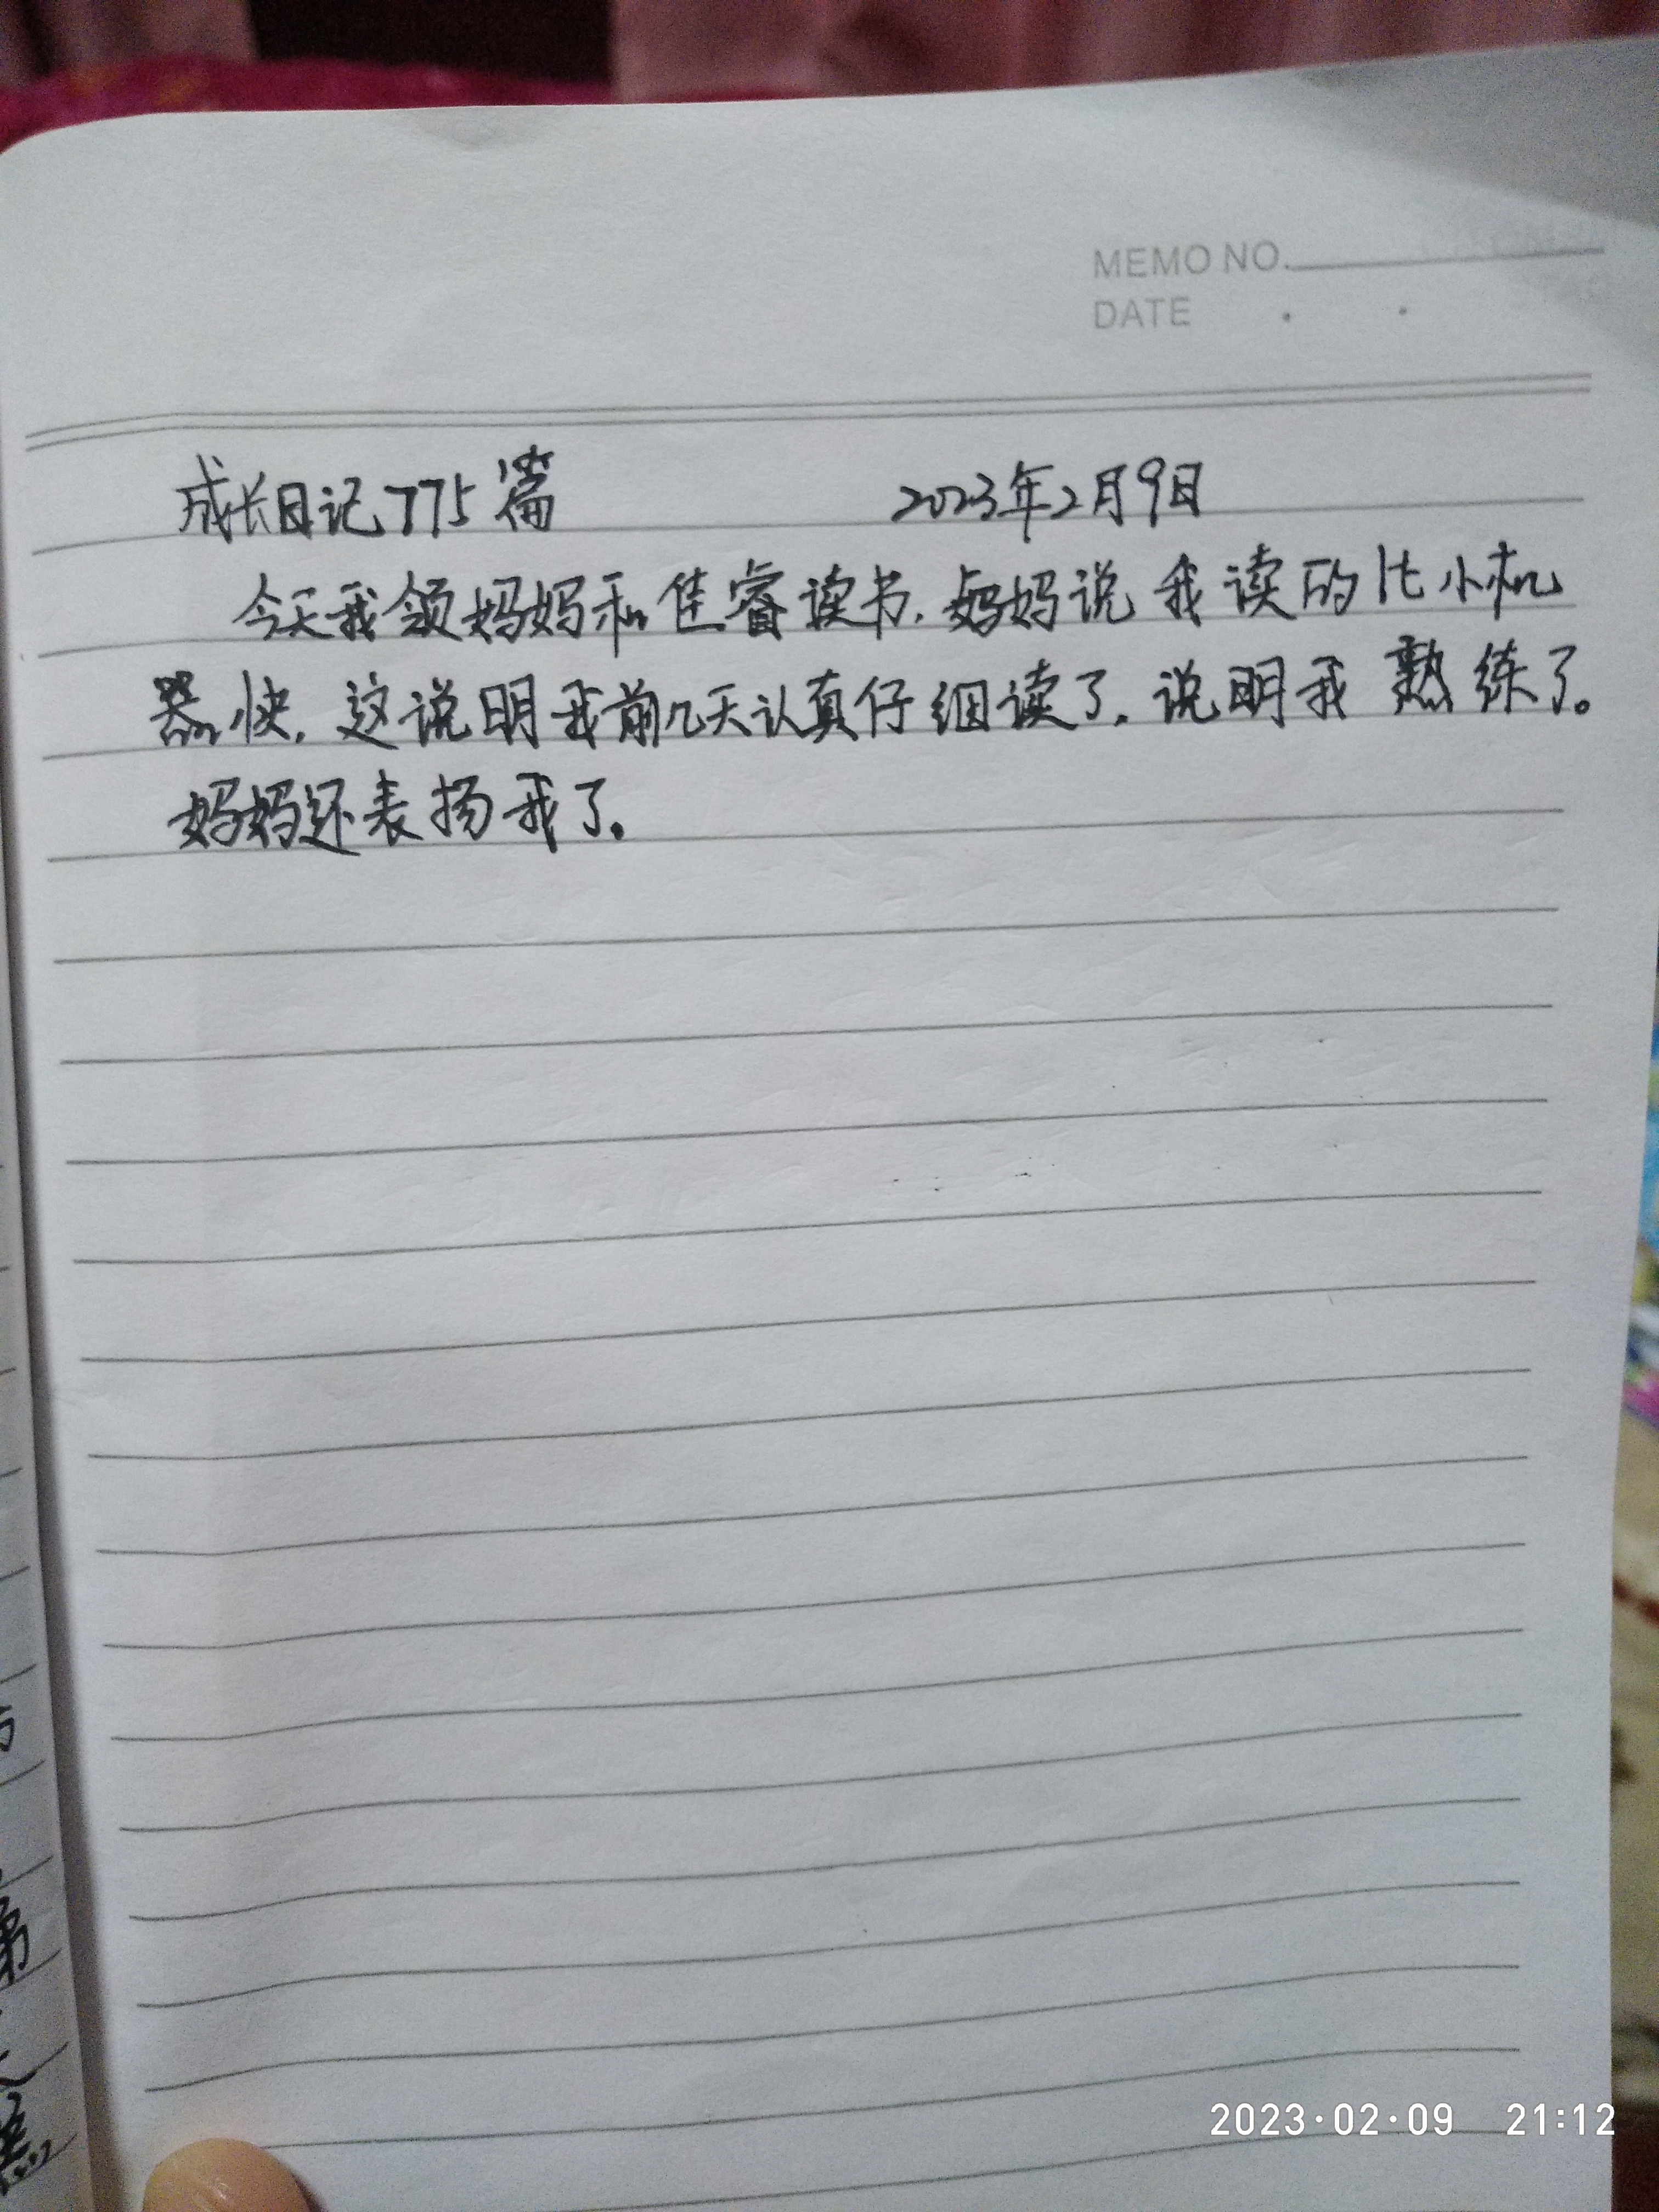 MEMO NO.
DATE . .
成长日记775篇 2023年2月9日
今天我领妈妈和佳睿读书.妈妈说我读的比小机
器快.这说明我前几天认真仔细读了.说明我熟练了。
妈妈还表扬我了。
2023·02·09 21:12